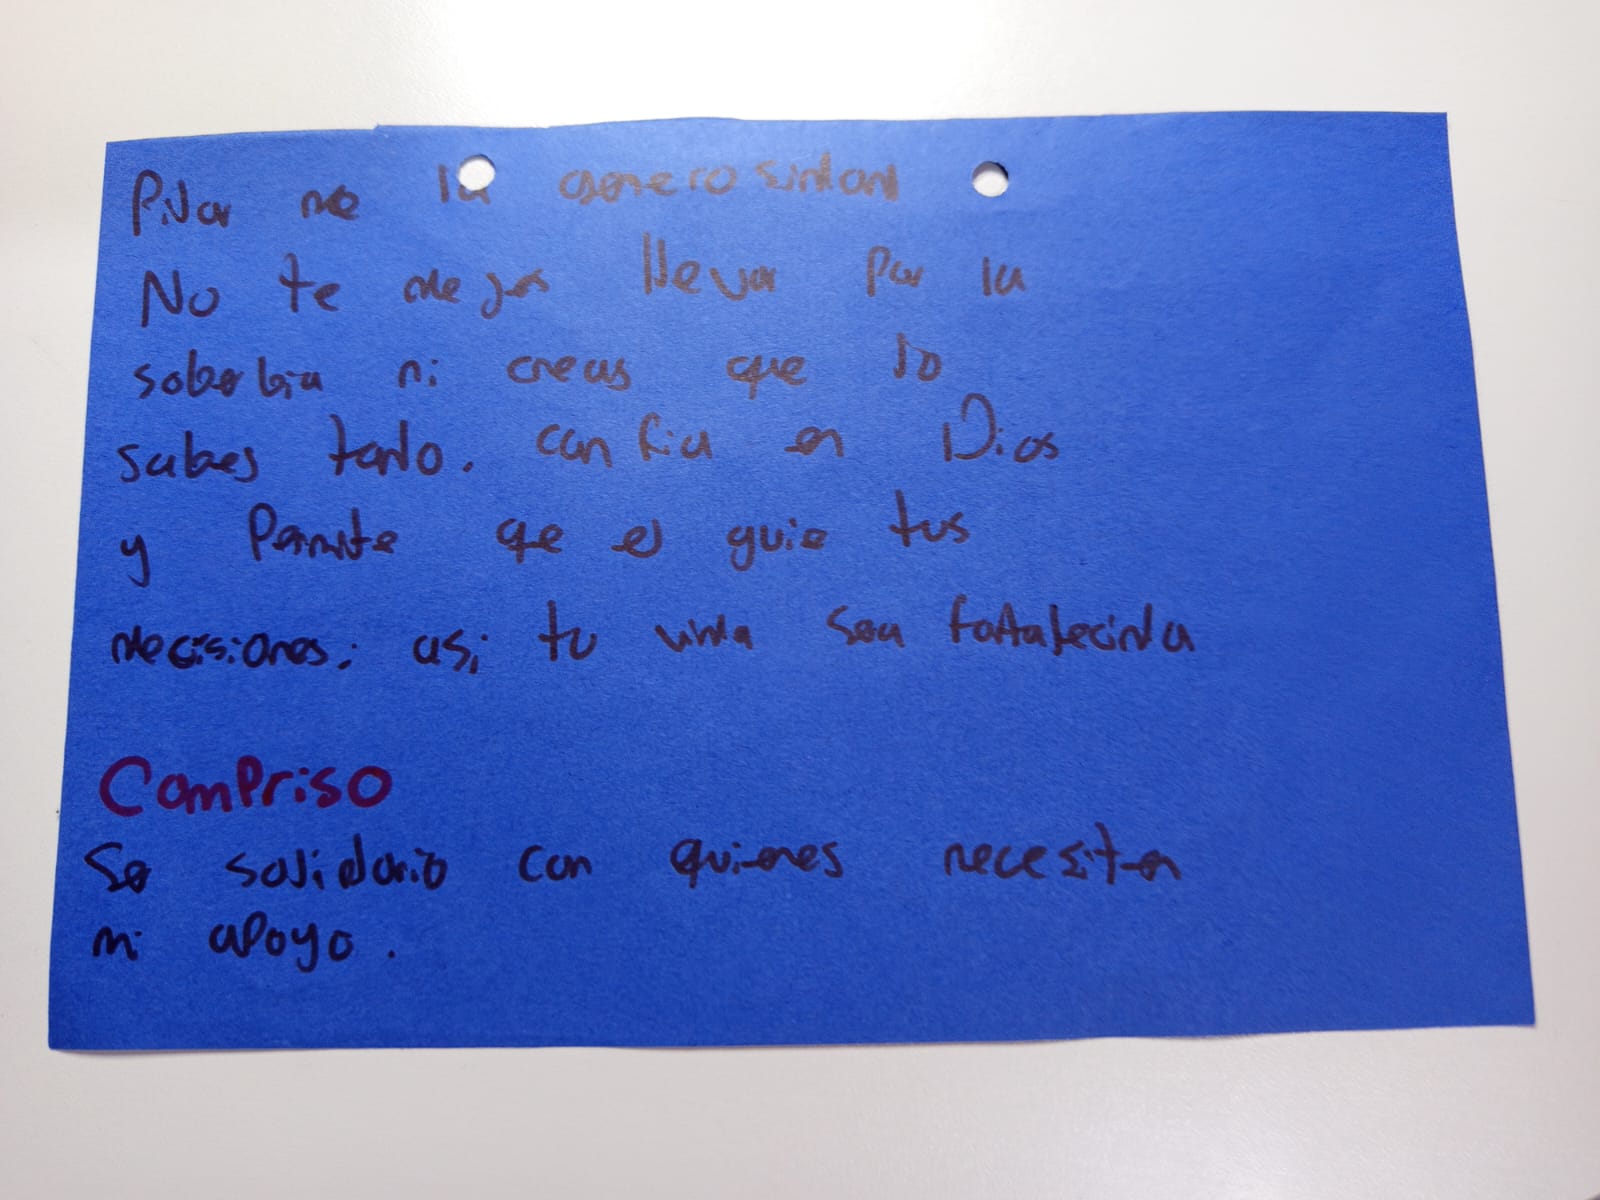 Pilar de la generosidad
No te dejes llevar por la
soberbia ni creas que lo
sabes todo. confia en Dios
y Permite que el guie tus
decisiones; asi tu vida sea fortalecida
ComPriso
Se solidario con quienes necesiten
mi apoyo.